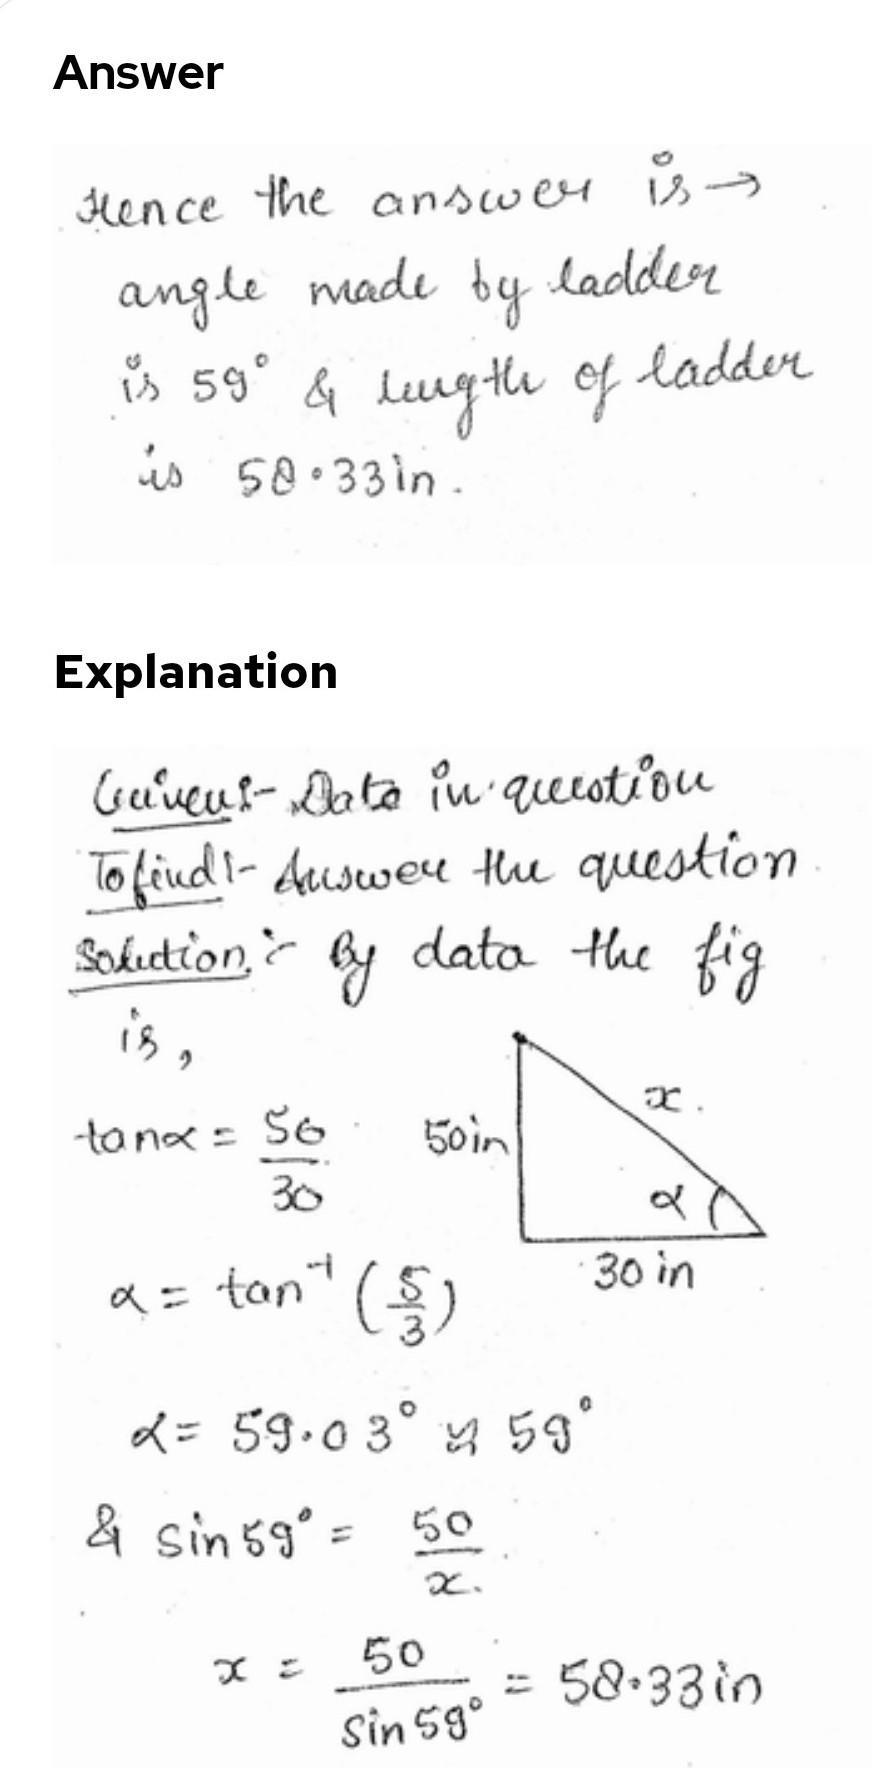 Answer
Hence the answer is →
angle made by ladder
is 59° & length of ladder
is 58.33in.
Explanation
Given:- Data in question
To find:- Answer the question
Solution:- By data the fig
is,
x.
tanα = 50
50in
30
α
30 in
α = tan⁻¹ (5/3)
α = 59.03° ≈ 59°
& sin59° = 50
x.
x = 50 = 58.33in
sin59°